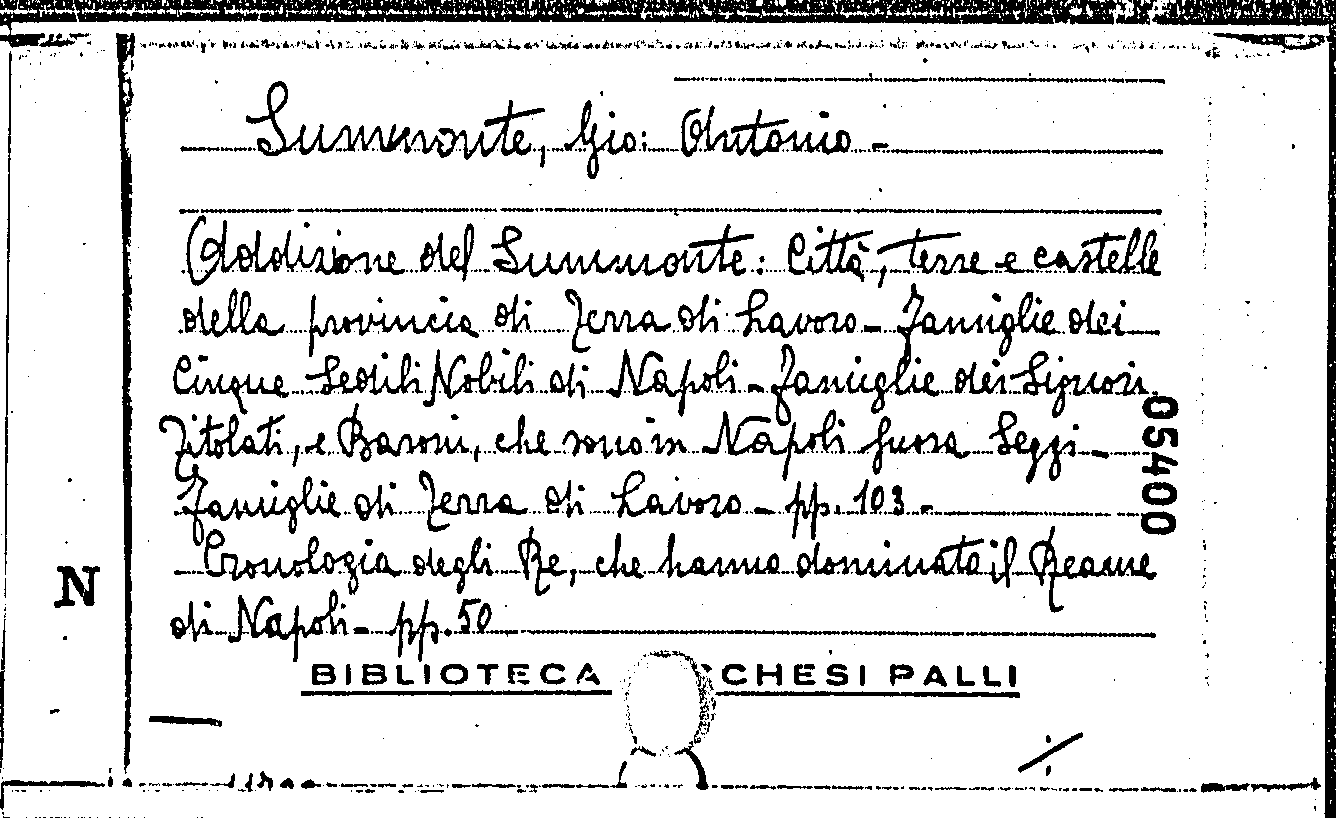 Summonte, Gio: Antonio -
Addizione del Summonte: Città, terre e castelle
della provincia di Terra di Lavoro - Famiglie dei
Cinque Sedili Nobili di Napoli - Famiglie dei Signori
Titolati, e Baroni, che sono in Napoli fuora Seggi -
Famiglie di Terra di Lavoro - pp. 103 -
Cronologia degli Re, che hanno dominato il Reame
di Napoli - pp. 50
05400
N
BIBLIOTECA CCHESI PALLI